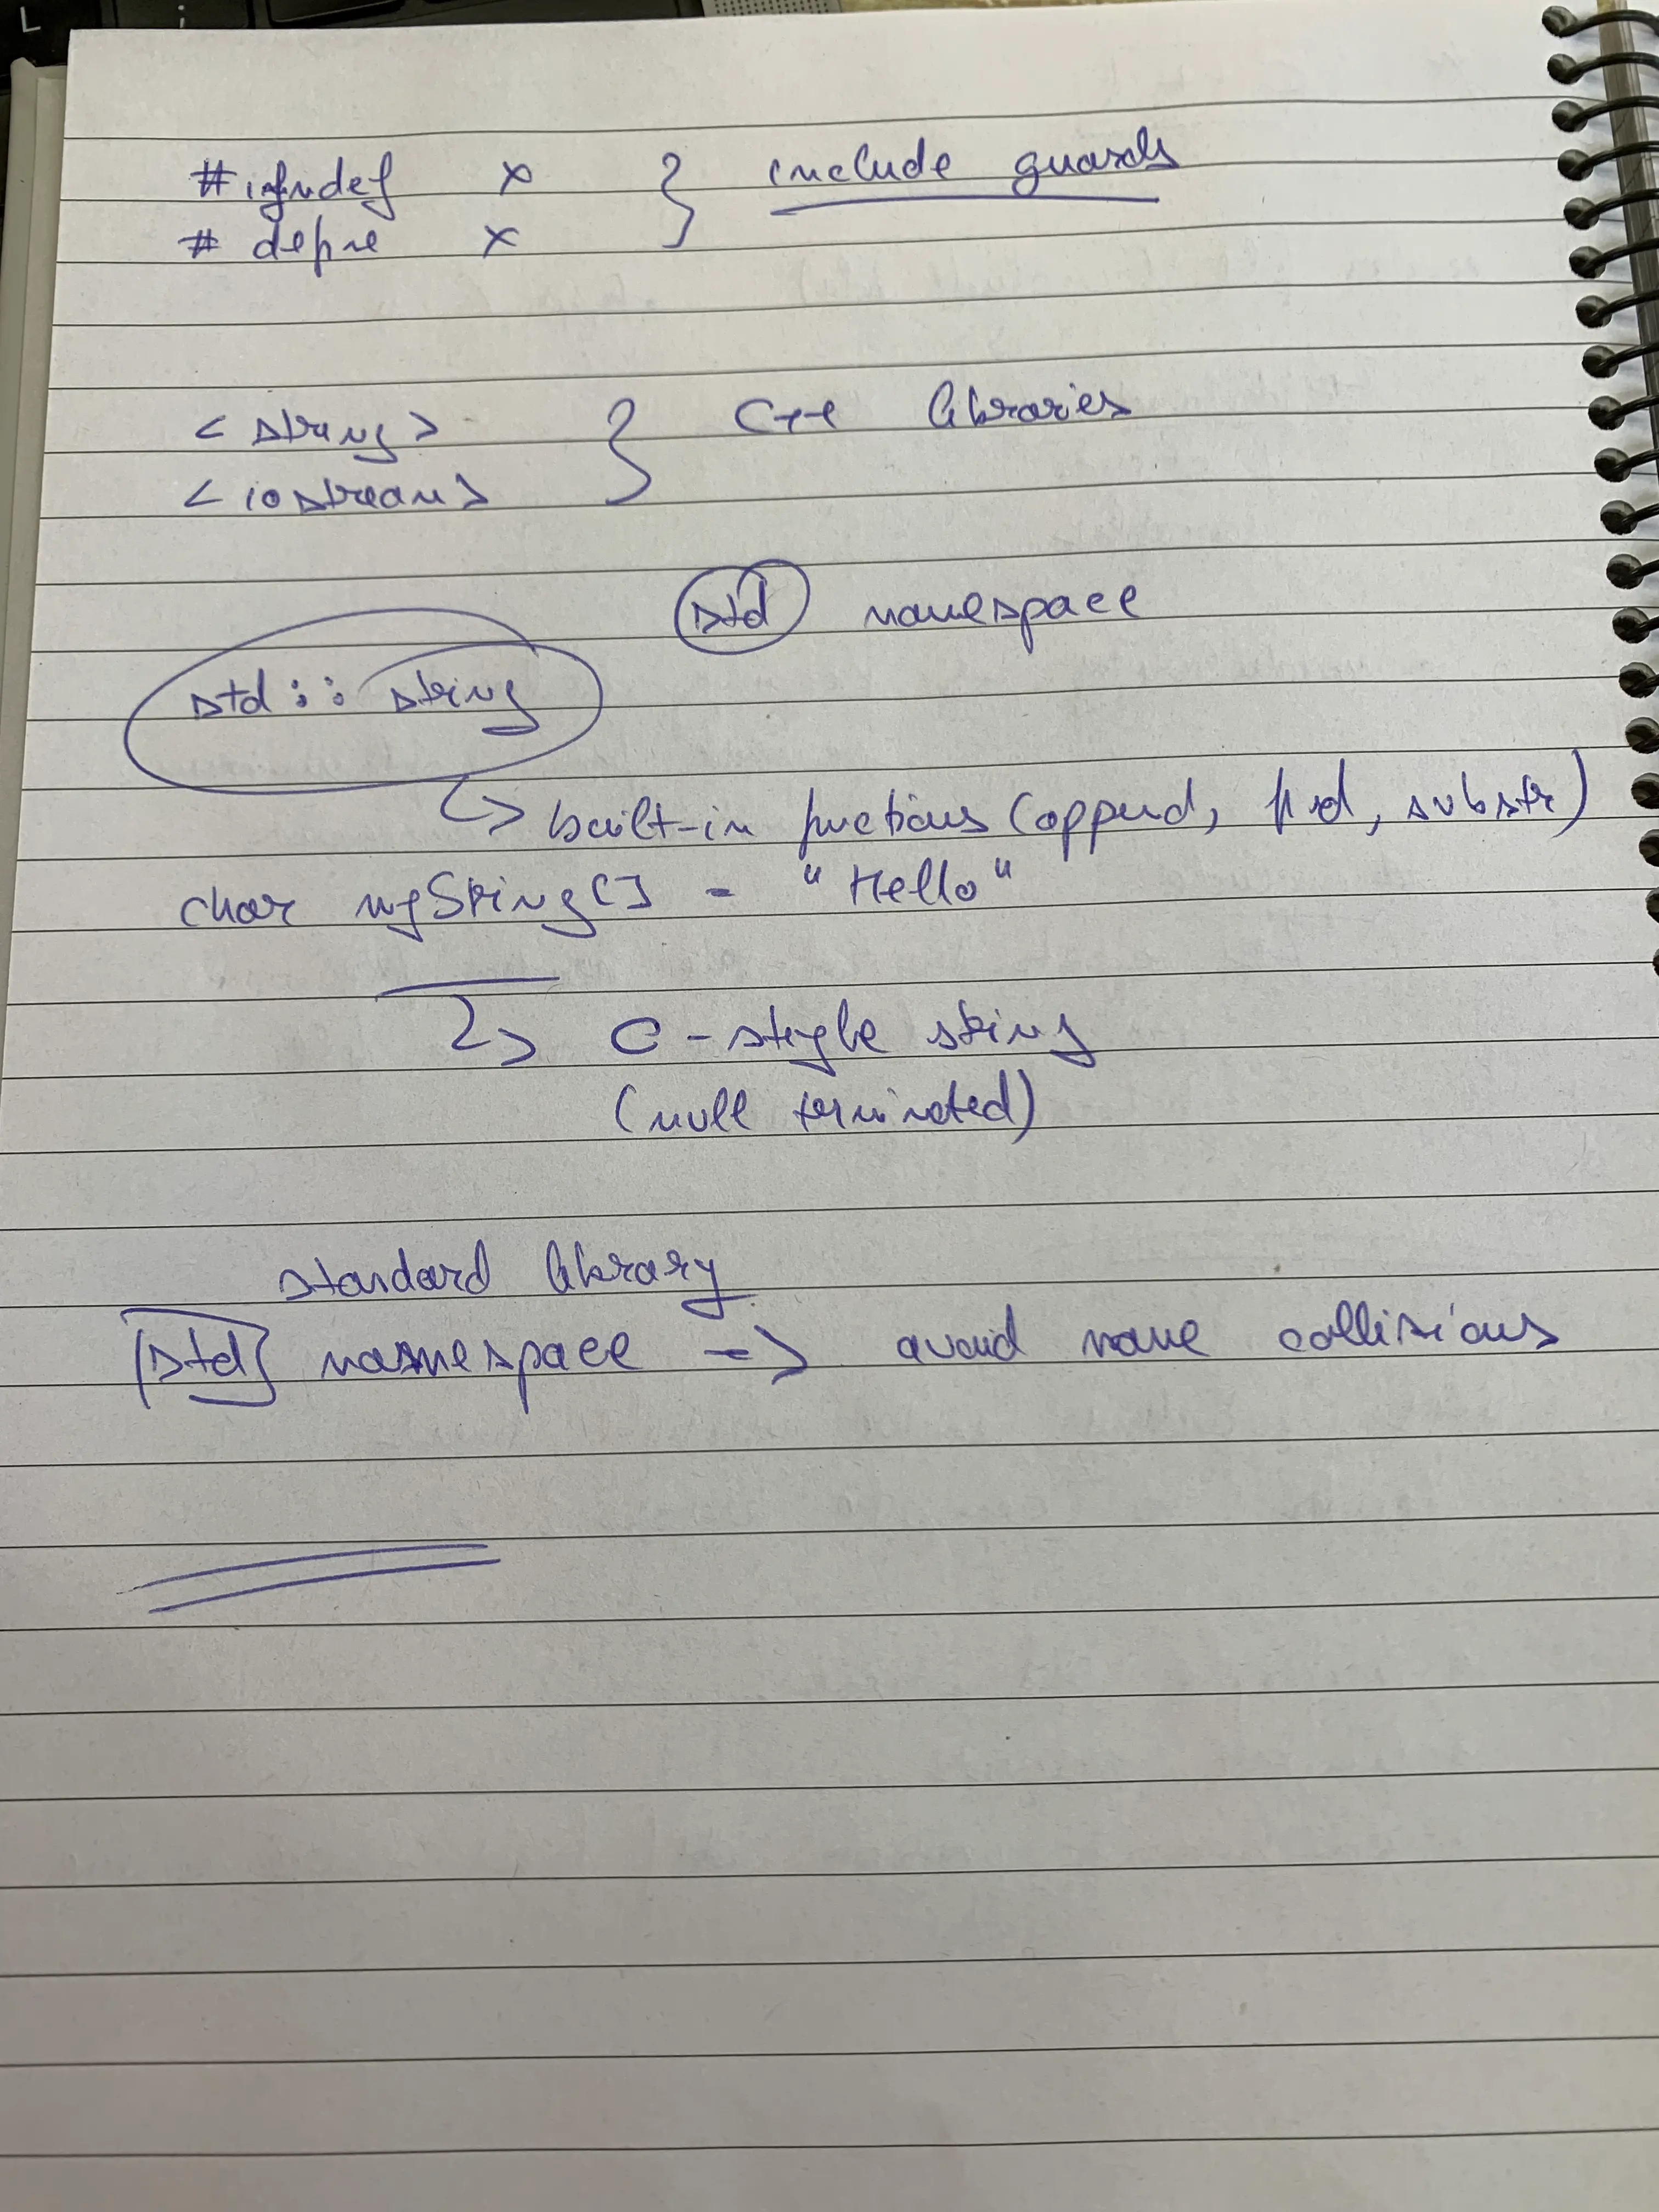 #ifndef x } include guards
# define x
<string> } C++ libraries
<iostream>
std namespace
std :: string
↳ built-in functions (append, find, substr)
char myString[] = "Hello"
↳ C-style string
(null terminated)
standard library
[std] namespace => avoid name collisions